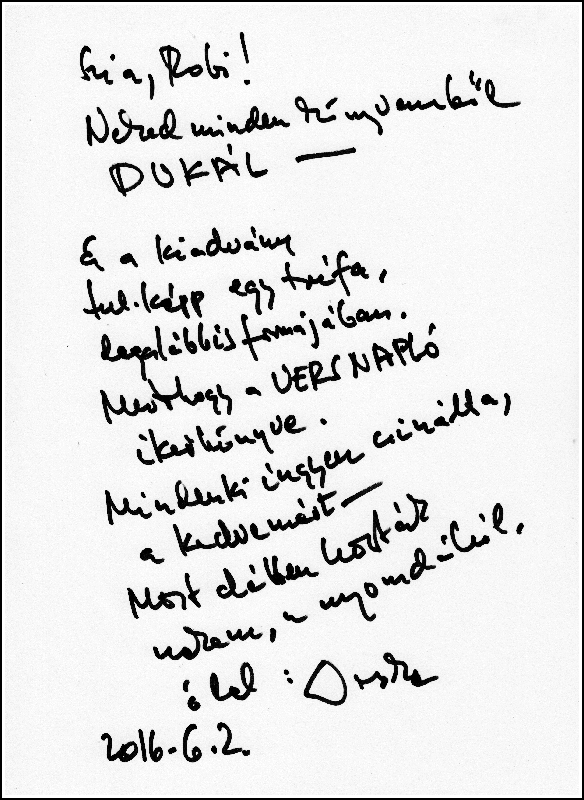 Szia, Robi!
Neked minden könyvemből
DUKÁL —
Ez a kiadvány
tul.képp egy tréfa,
legalábbis formájában.
Merthogy a VERSNAPLÓ
ikerkönyve.
Mindenki ingyen csinálta,
a kedvemért —
Most délben hozták
nekem, a nyomdából.
ölel:
2016.6.2.